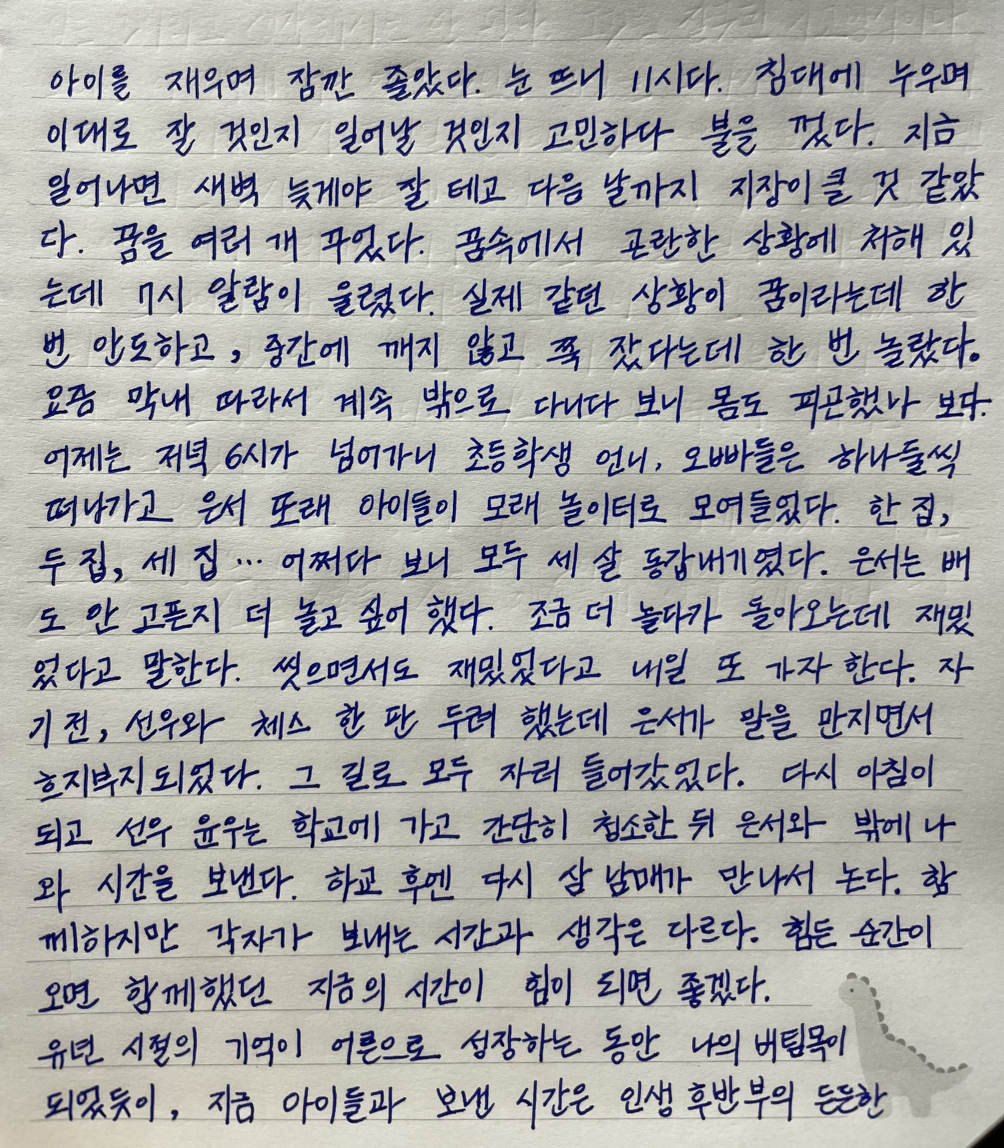 아이를 재우며 잠깐 졸았다. 눈 뜨니 11시다. 침대에 누우며
이대로 잘 것인지 일어날 것인지 고민하다 불을 껐다. 지금
일어나면 새벽 늦게야 잘 테고 다음 날까지 지장이 클 것 같았
다. 꿈을 여러 개 꾸었다. 꿈속에서 곤란한 상황에 처해 있
는데 7시 알람이 울렸다. 실제 같던 상황이 꿈이라는데 한
번 안도하고, 중간에 깨지 않고 쭉 잤다는데 한 번 놀랐다.
요즘 막내 따라서 계속 밖으로 다니다 보니 몸도 피곤했나 보다.
어제는 저녁 6시가 넘어가니 초등학생 언니, 오빠들은 하나둘씩
떠나가고 은서 또래 아이들이 모래 놀이터로 모여들었다. 한 집,
두 집, 세 집 … 어쩌다 보니 모두 세 살 동갑내기였다. 은서는 배
도 안 고픈지 더 놀고 싶어 했다. 조금 더 놀다가 돌아오는데 재밌
었다고 말한다. 씻으면서도 재밌었다고 내일 또 가자 한다. 자
기 전, 선우와 체스 한 판 두려 했는데 은서가 말을 만지면서
흐지부지되었다. 그 길로 모두 자러 들어갔었다. 다시 아침이
되고 선우 윤우는 학교에 가고 간단히 청소한 뒤 은서와 밖에 나
와 시간을 보낸다. 하교 후엔 다시 삼 남매가 만나서 논다. 함
께하지만 각자가 보내는 시간과 생각은 다르다. 힘든 순간이
오면 함께했던 지금의 시간이 힘이 되면 좋겠다.
유년 시절의 기억이 어른으로 성장하는 동안 나의 버팀목이
되었듯이, 지금 아이들과 보낸 시간은 인생 후반부의 든든한